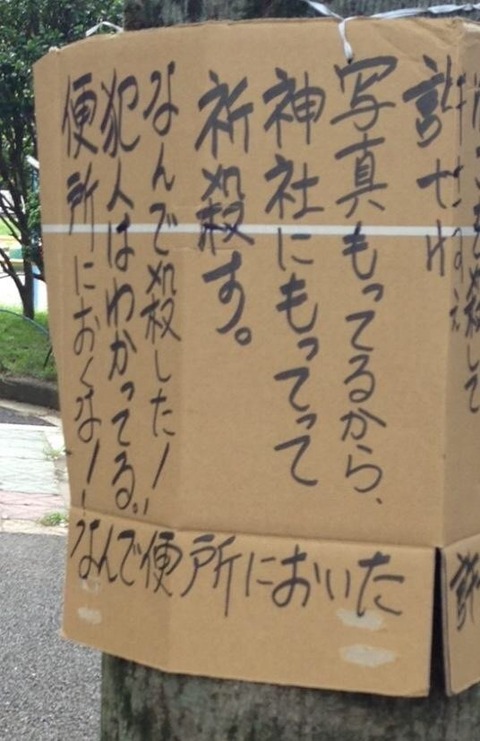 殺して
許せねえ
許せね
写真もってるから、
神社にもってって
祈殺す。
なんで殺した！
犯人はわかってる。
便所におくな！！
なんで便所においた
許